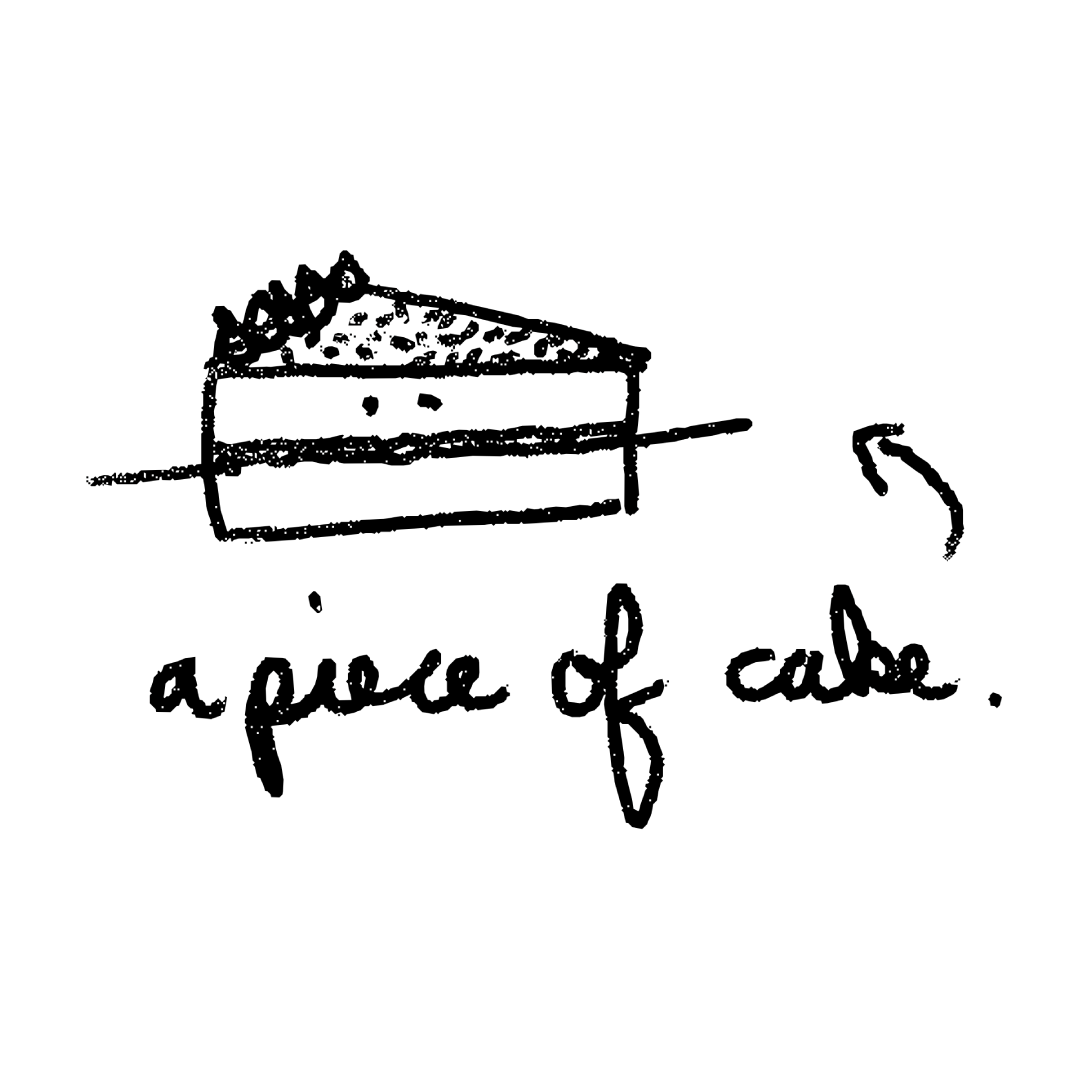 a piece of cake.